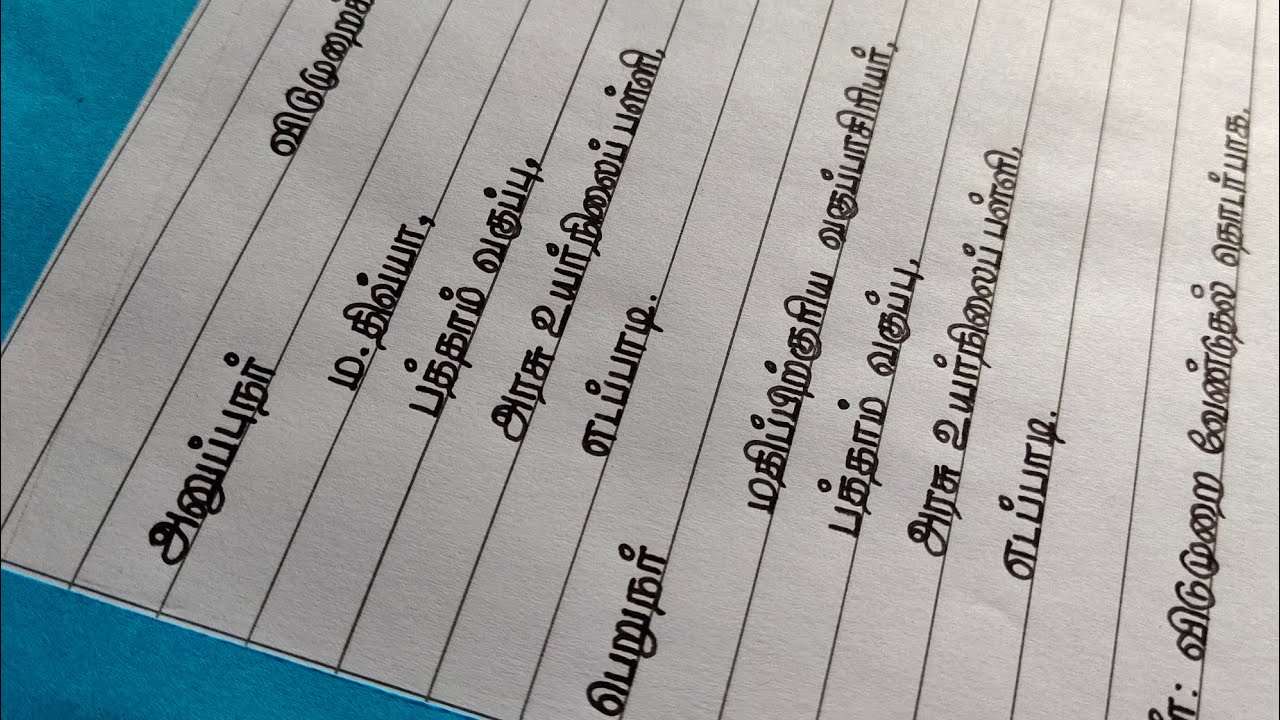 அனுப்புநர்
ம.திவ்யா,
பத்தாம் வகுப்பு,
அரசு உயர்நிலைப் பள்ளி,
எடப்பாடி.
பெறுநர்
மதிப்பிற்குரிய வகுப்பாசிரியர்,
பத்தாம் வகுப்பு,
அரசு உயர்நிலைப் பள்ளி,
எடப்பாடி.
விடுமுறை வேண்டுதல் தொடர்பாக.